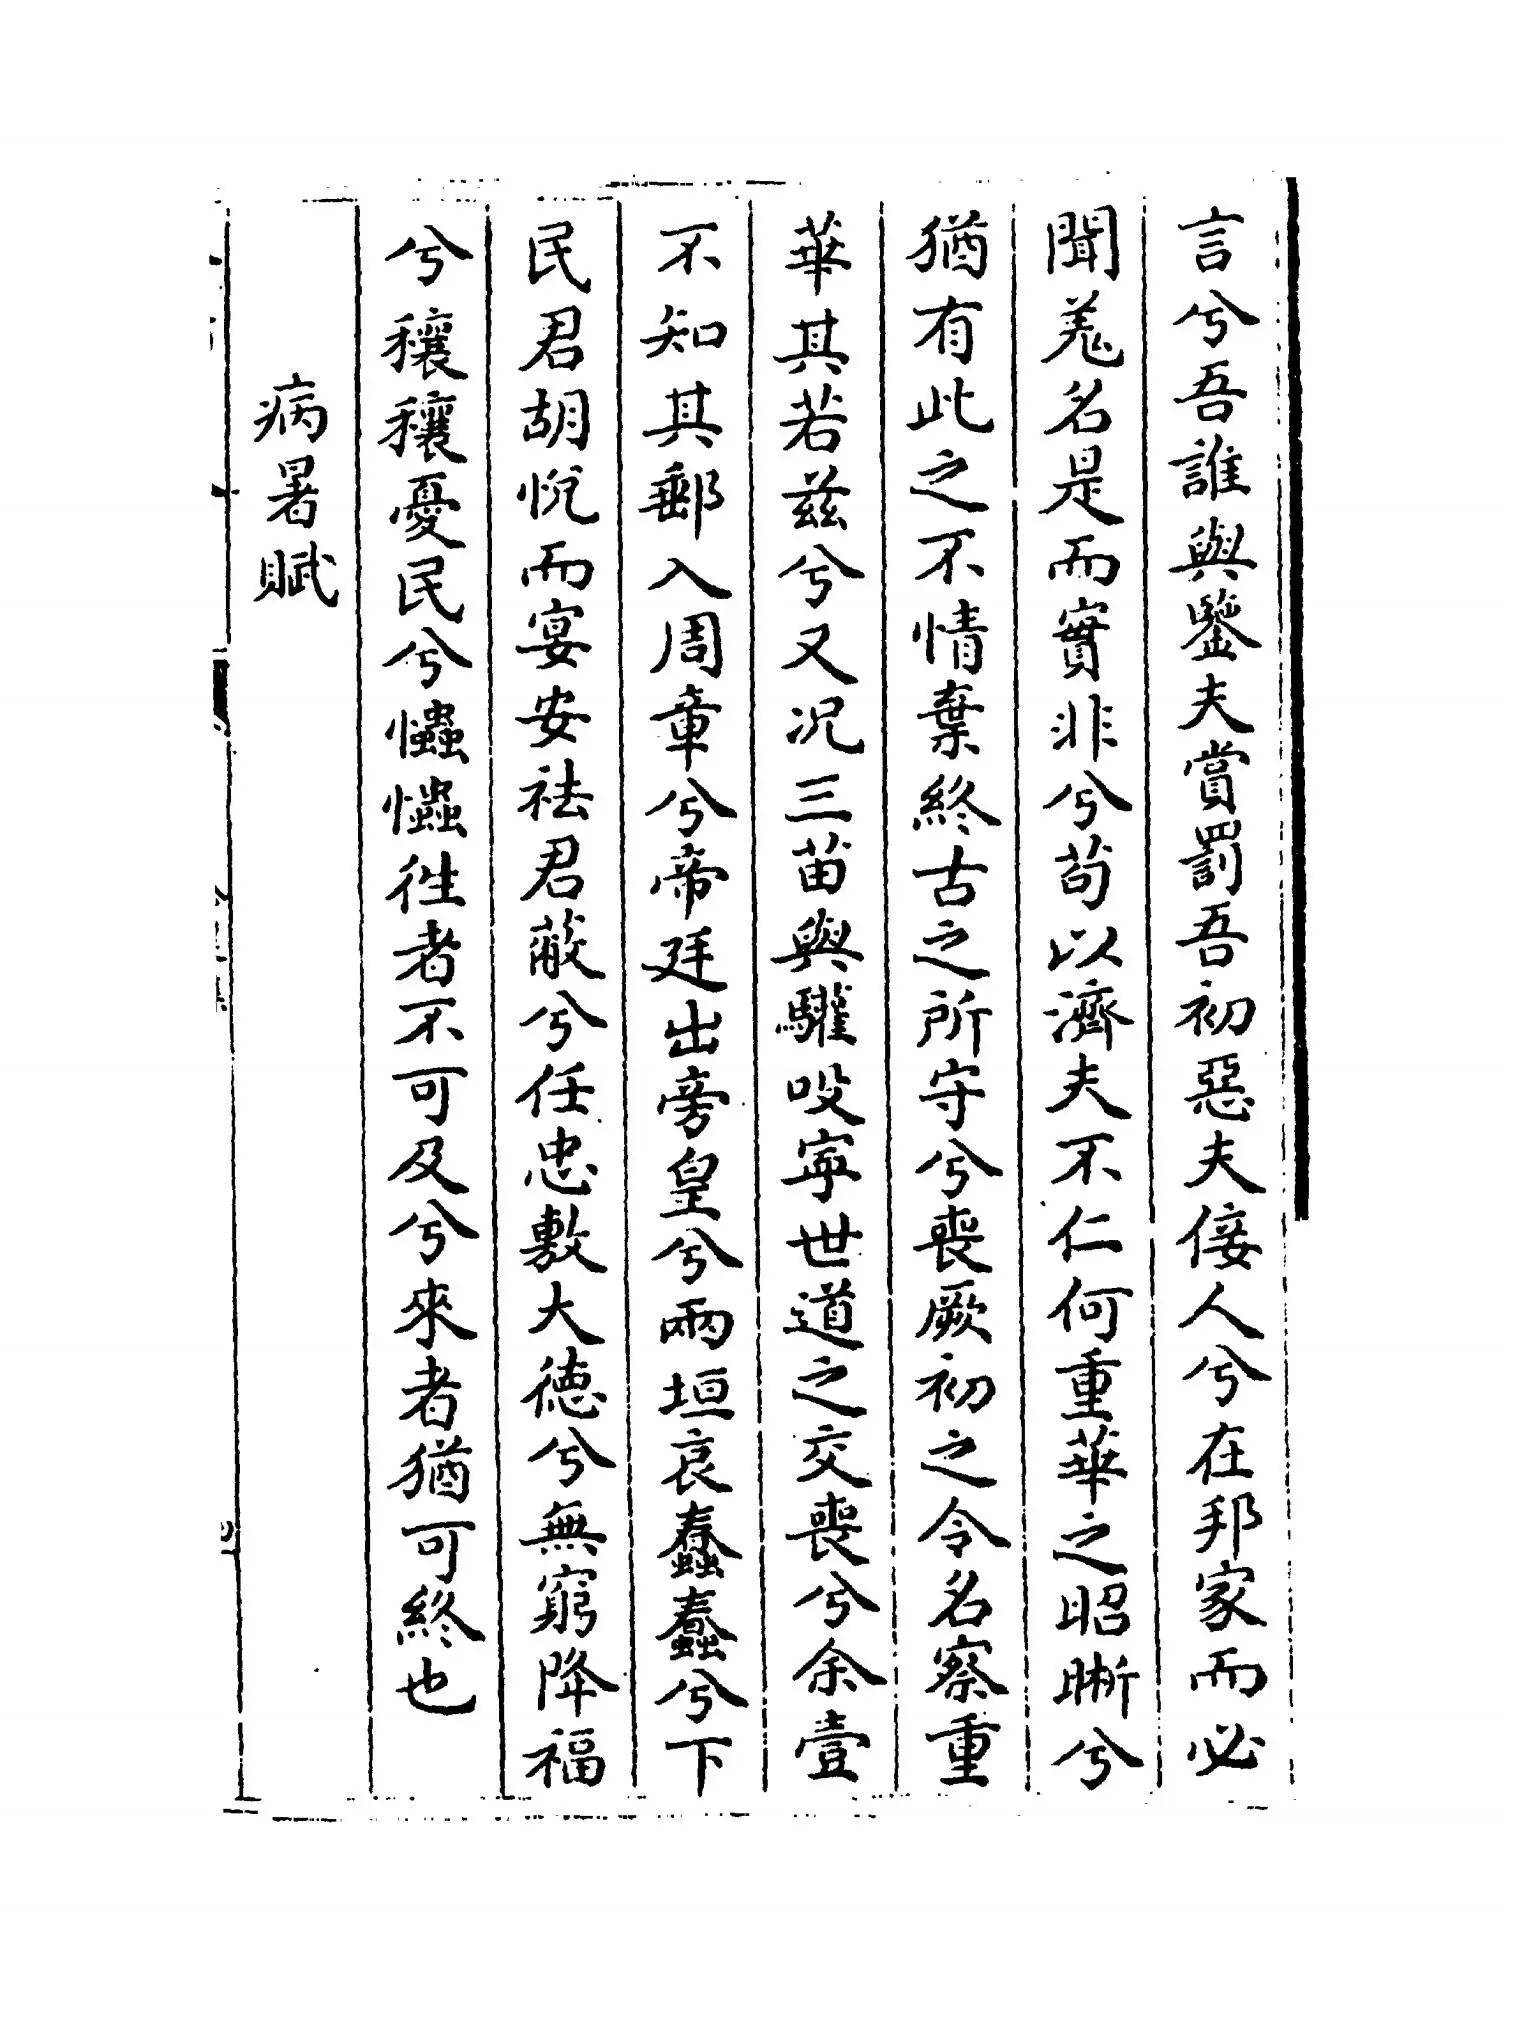 言兮吾誰與鑒夫賞罰吾初惡夫佞人兮在邦家而必
聞羌名是而實非兮茍以濟夫不仁何重華之昭晣兮
猶有此之不情棄終古之所守兮喪厥初之令名察重
華其若茲兮又况三苗與驩吺寧世道之交喪兮余壹
不知其郵入周章兮帝廷出旁皇兮兩垣哀蠢蠢兮下
民君胡恱而宴安祛君蔽兮任忠敷大德兮無窮降福
兮穰穰憂民兮爞爞徃者不可及兮來者猶可終也
病暑賦